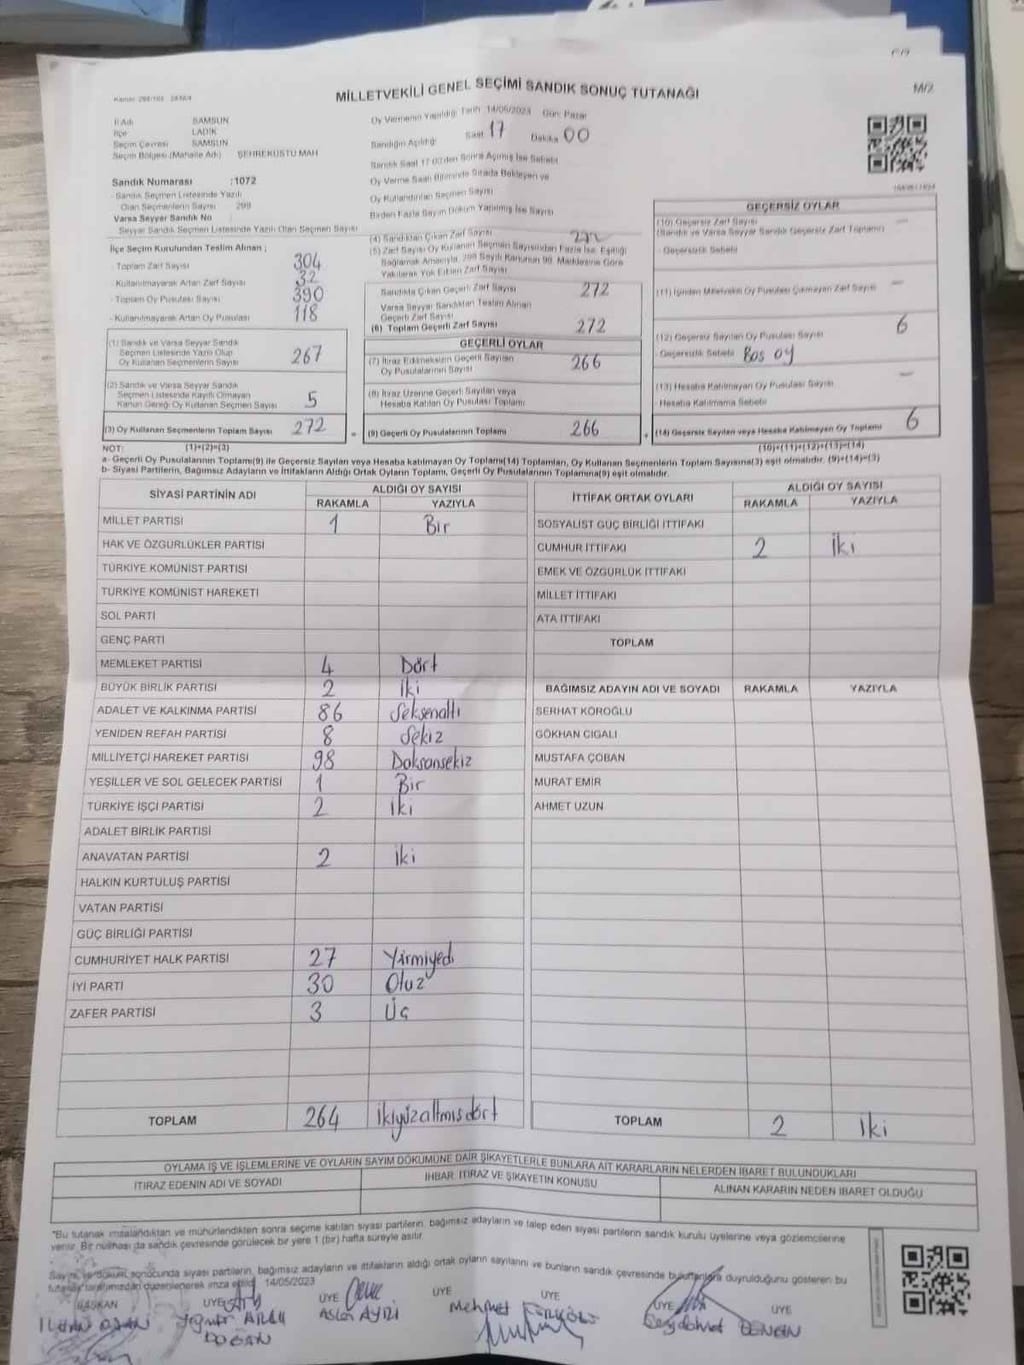 M/2
MİLLETVEKİLİ GENEL SEÇİMİ SANDIK SONUÇ TUTANAĞI
İl Adı SAMSUN
İlçe LADİK
Seçim Çevresi SAMSUN
Seçim Bölgesi (Mahalle Adı) ŞEHREKÜSTÜ MAH
Sandık Numarası :1072
Sandık Seçmen Listesinde Yazılı
Olan Seçmenlerin Sayısı 299
Varsa Seyyar Sandık No
Seyyar Sandık Seçmen Listesinde Yazılı Olan Seçmen Sayısı
İlçe Seçim Kurulundan Teslim Alınan ;
- Toplam Zarf Sayısı 304
- Kullanılmayarak Artan Zarf Sayısı 32
- Toplam Oy Pusulası Sayısı 390
- Kullanılmayarak Artan Oy Pusulası 118
(1) Sandık ve Varsa Seyyar Sandık
Seçmen Listesinde Yazılı Olup
Oy Kullanan Seçmenlerin Sayısı 267
(2) Sandık ve Varsa Seyyar Sandık
Seçmen Listesinde Kayıtlı Olmayan
Kanun Gereği Oy Kullanan Seçmen Sayısı 5
(3) Oy Kullanan Seçmenlerin Toplam Sayısı 272
Oy Vermenin Yapıldığı Tarih 14/05/2023 Gün: Pazar
Sandığın Açıldığı Saat 17 Dakika 00
Sandık Saat 17:00'den Sonra Açılmış İse Sebebi
Oy Verme Saati Bitiminde Sırada Bekleyen ve
Oy Kullandırılan Seçmen Sayısı
Birden Fazla Sayım Döküm Yapılmış İse Sayısı
(4) Sandıktan Çıkan Zarf Sayısı 272
(5) Zarf Sayısı Oy Kullanan Seçmen Sayısından Fazla İse, Eşitliği
Sağlamak Amacıyla, 298 Sayılı Kanunun 98. Maddesine Göre
Yakılarak Yok Edilen Zarf Sayısı
Sandıkta Çıkan Geçerli Zarf Sayısı 272
Varsa Seyyar Sandıktan Teslim Alınan
Geçerli Zarf Sayısı
(6) Toplam Geçerli Zarf Sayısı 272
GEÇERLİ OYLAR
(7) İtiraz Edilmeksizin Geçerli Sayılan
Oy Pusulalarının Sayısı 266
(8) İtiraz Üzerine Geçerli Sayılan veya
Hesaba Katılan Oy Pusulası Toplamı
= (9) Geçerli Oy Pusulalarının Toplamı 266
GEÇERSİZ OYLAR
(10) Geçersiz Zarf Sayısı —
(Sandık ve Varsa Seyyar Sandık Geçersiz Zarf Toplamı)
Geçersizlik Sebebi
(11) İçinden Milletvekili Oy Pusulası Çıkmayan Zarf Sayısı —
(12) Geçersiz Sayılan Oy Pusulası Sayısı 6
Geçersizlik Sebebi Boş oy
(13) Hesaba Katılmayan Oy Pusulası Sayısı —
- Hesaba Katılmama Sebebi
+ (14) Geçersiz Sayılan veya Hesaba Katılmayan Oy Toplamı 6
NOT: (1)+(2)=(3) (10)+(11)+(12)+(13)=(14)
a- Geçerli Oy Pusulalarının Toplamı(9) ile Geçersiz Sayılan veya Hesaba katılmayan Oy Toplamı(14) Toplamları, Oy Kullanan Seçmenlerin Toplam Sayısına(3) eşit olmalıdır. (9)+(14)=(3)
b- Siyasi Partilerin, Bağımsız Adayların ve İttifakların Aldığı Ortak Oyların Toplamı, Geçerli Oy Pusulalarının Toplamına(9) eşit olmalıdır.
SİYASİ PARTİNİN ADI ALDIĞI OY SAYISI
RAKAMLA YAZIYLA
MİLLET PARTİSİ 1 Bir
HAK VE ÖZGÜRLÜKLER PARTİSİ
TÜRKİYE KOMÜNİST PARTİSİ
TÜRKİYE KOMÜNİST HAREKETİ
SOL PARTİ
GENÇ PARTİ
MEMLEKET PARTİSİ 4 Dört
BÜYÜK BİRLİK PARTİSİ 2 iki
ADALET VE KALKINMA PARTİSİ 86 Seksenaltı
YENİDEN REFAH PARTİSİ 8 Sekiz
MİLLİYETÇİ HAREKET PARTİSİ 98 Doksansekiz
YEŞİLLER VE SOL GELECEK PARTİSİ 1 Bir
TÜRKİYE İŞÇİ PARTİSİ 2 iki
ADALET BİRLİK PARTİSİ
ANAVATAN PARTİSİ 2 iki
HALKIN KURTULUŞ PARTİSİ
VATAN PARTİSİ
GÜÇ BİRLİĞİ PARTİSİ
CUMHURİYET HALK PARTİSİ 27 Yirmiyedi
İYİ PARTİ 30 Otuz
ZAFER PARTİSİ 3 Üç
TOPLAM 264 ikiyüzaltmışdört
İTTİFAK ORTAK OYLARI ALDIĞI OY SAYISI
RAKAMLA YAZIYLA
SOSYALİST GÜÇ BİRLİĞİ İTTİFAKI
CUMHUR İTTİFAKI 2 iki
EMEK VE ÖZGÜRLÜK İTTİFAKI
MİLLET İTTİFAKI
ATA İTTİFAKI
TOPLAM
BAĞIMSIZ ADAYIN ADI VE SOYADI RAKAMLA YAZIYLA
SERHAT KÖROĞLU
GÖKHAN CIGALI
MUSTAFA ÇOBAN
MURAT EMİR
AHMET UZUN
TOPLAM 2 iki
OYLAMA İŞ VE İŞLEMLERİNE VE OYLARIN SAYIM DÖKÜMÜNE DAİR ŞİKAYETLERLE BUNLARA AİT KARARLARIN NELERDEN İBARET BULUNDUKLARI
İTİRAZ EDENİN ADI VE SOYADI İHBAR İTİRAZ VE ŞİKAYETİN KONUSU ALINAN KARARIN NEDEN İBARET OLDUĞU
"Bu tutanak imzalandıktan ve mühürlendikten sonra seçime katılan siyasi partilerin, bağımsız adayların ve talep eden siyasi partilerin sandık kurulu üyelerine veya gözlemcilerine
verilir. Bir nüshası da sandık çevresinde görülecek bir yere 1 (bir) hafta süreyle asılır.
Sayım ve döküm sonucunda siyasi partilerin, bağımsız adayların ve ittifakların aldığı ortak oyların sayılarını ve bunların sandık çevresinde bulunanlara duyrulduğunu gösteren bu
tutanak tarafımızdan düzenlenerek imza edildi. 14/05/2023
BAŞKAN ÜYE ÜYE ÜYE ÜYE ÜYE
Aslan AYDI Mehmet
DOĞAN